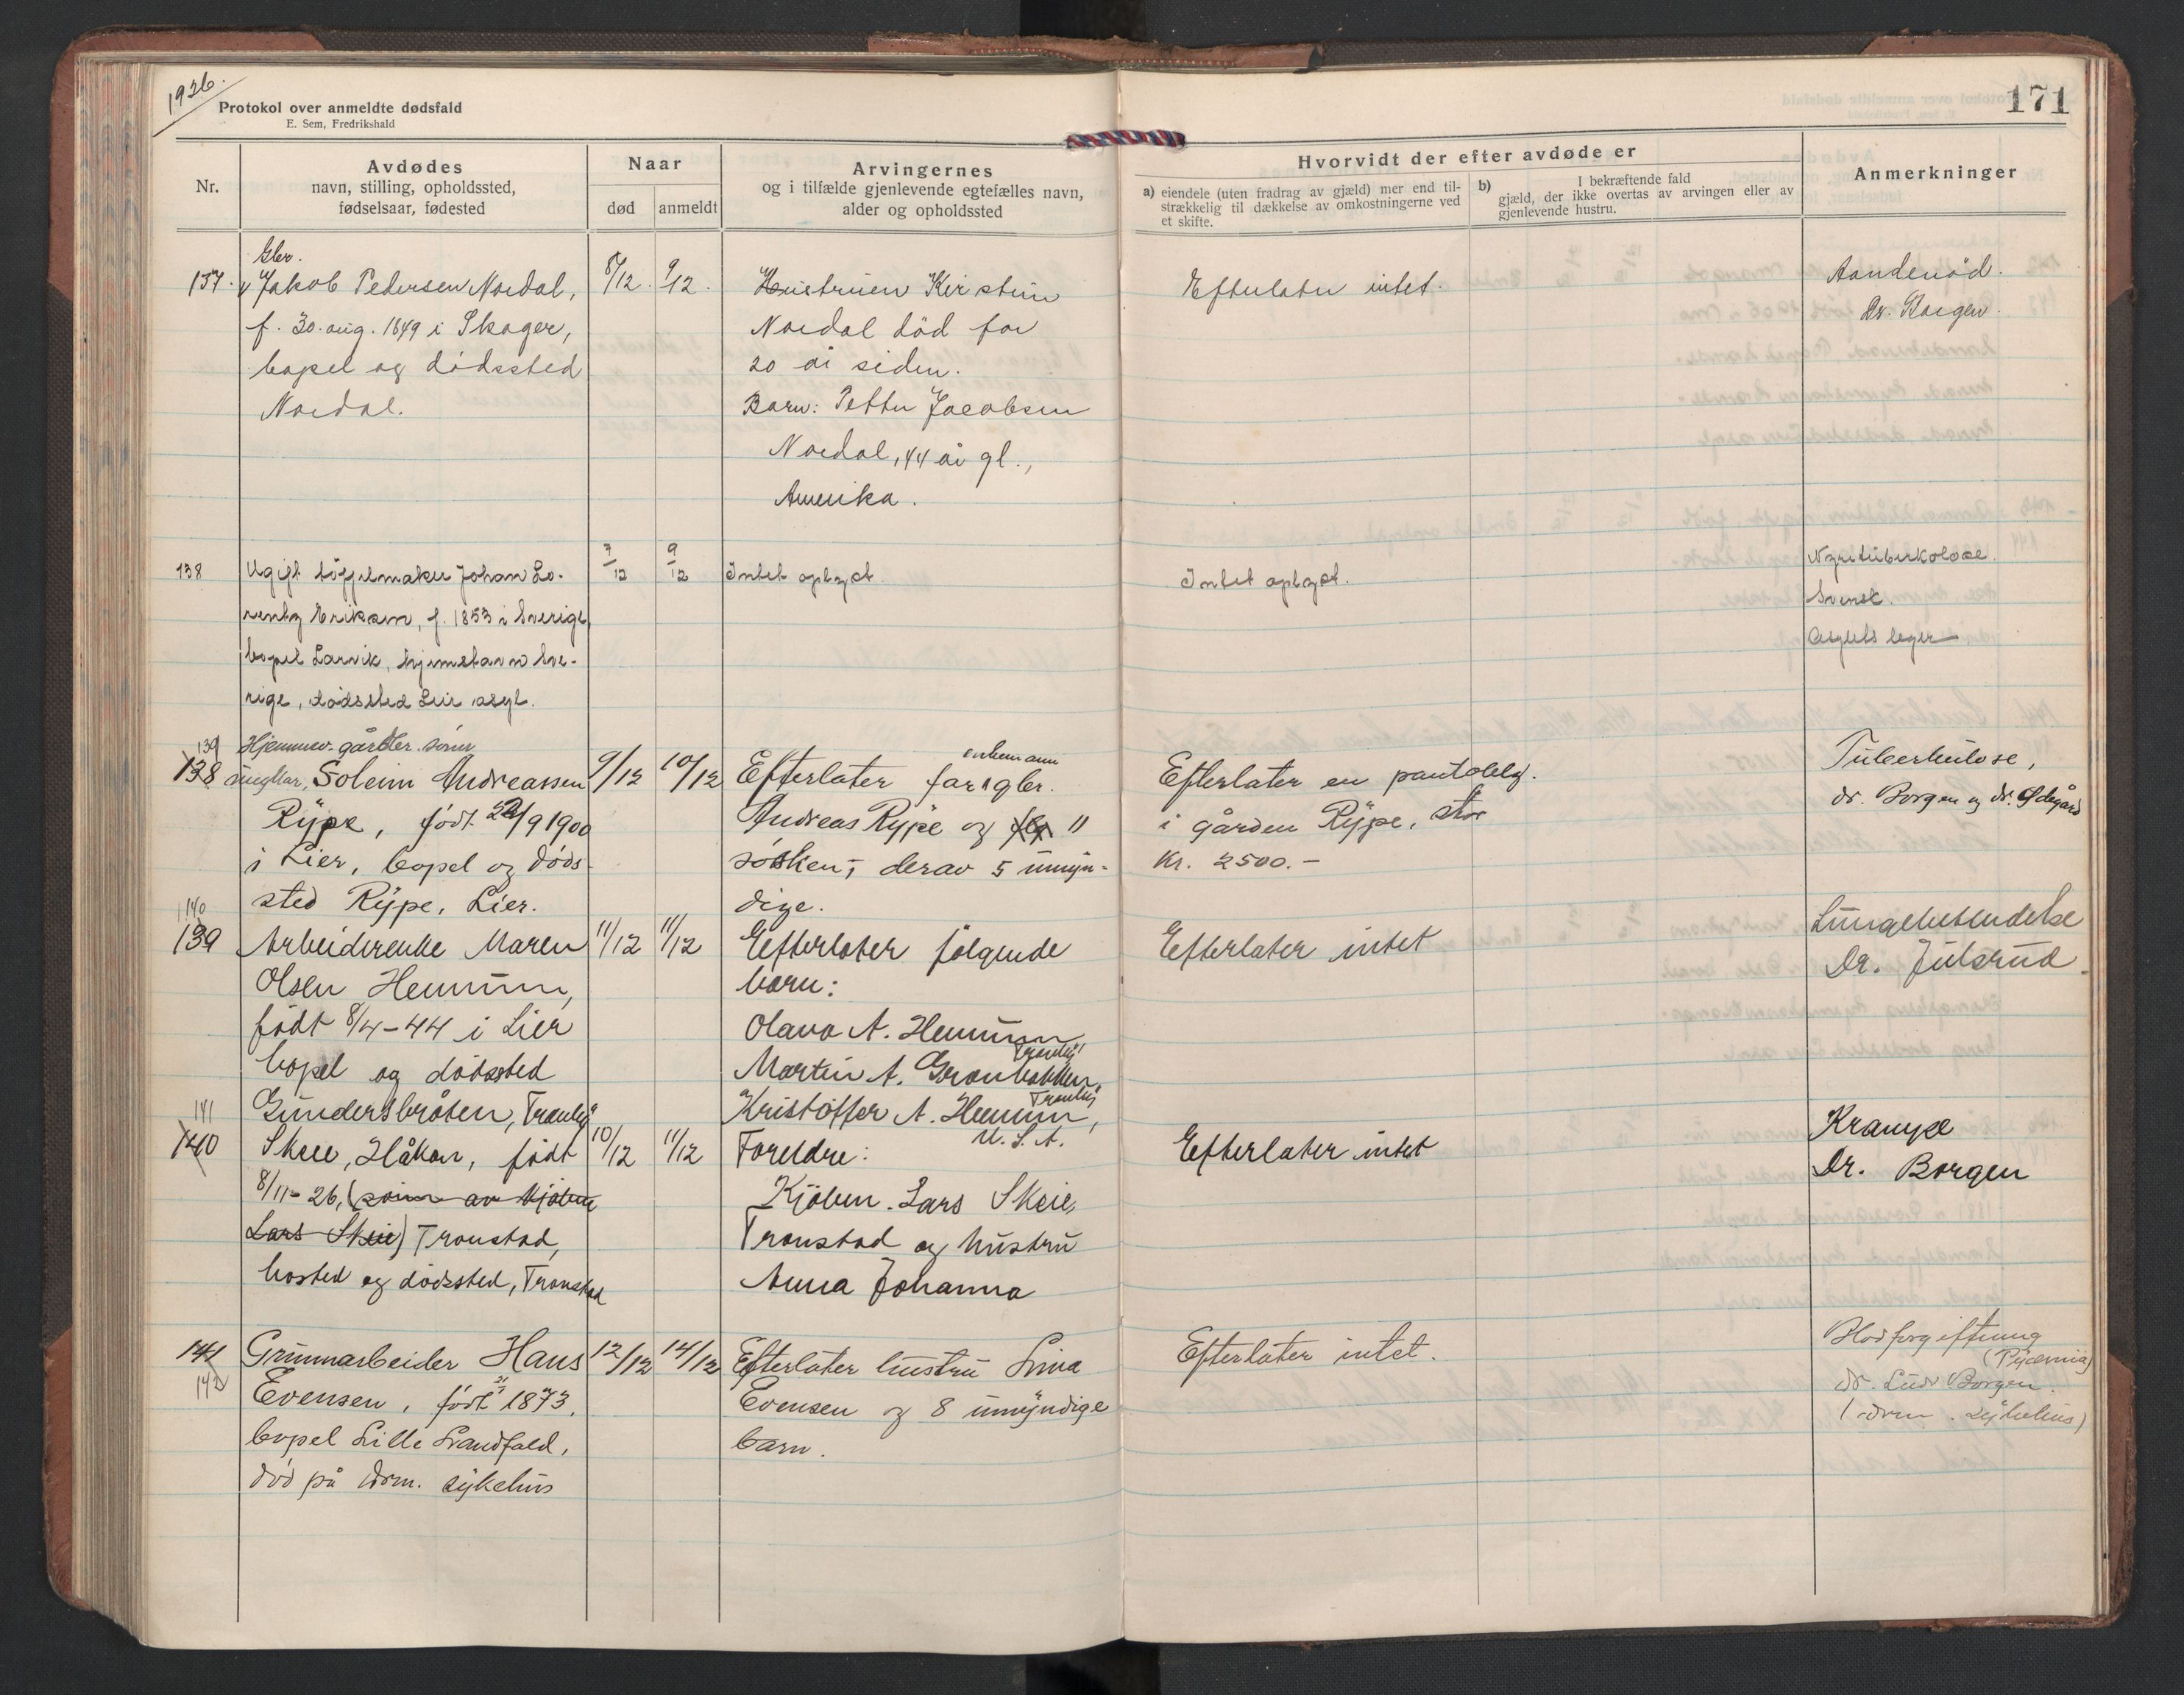 1926.
Protokol over anmeldte dødsfald
E. Sem, Fredrikshald
171
Nr.
Avdødes
navn, stilling, opholdssted,
fødselsaar, fødested
Naar
død
anmeldt
Arvingernes
og i tilfælde gjenlevende egtefælles navn,
alder og opholdssted
Hvorvidt der efter avdøde er
a) eiendele (uten fradrag av gjæld) mer end til-
strækkelig til dækkelse av omkostningerne ved
et skifte.
b) I bekræftende fald
gjæld, der ikke overtas av arvingen eller av
gjenlevende hustru.
Anmerkninger
137.
Gbr.
Jakob Pedersen Nordal,
f. 30. aug. 1849 i Skoger,
bopel og dødssted
Nordal.
8/12.
9/12.
Hustruen Kirstine
Nordal död for
20 år siden.
Barn: Petter Jacobsen
Nordal, 44 år gl.,
Amerika.
Efterlater intet.
Aandenød.
Dr. Borgen.
138
Ugift töffelmaker Johan Lo-
rentz Eriksen, f. 1853 i Sverige,
bopel Larvik, hjemstavn Sve-
rige, dødssted Lier asyl.
7/12
9/12
Intet oplyst.
Intet oplyst.
Nyretuberkolose.
Svensk.
Asylets leger
139
138
Hjemmev. gårdbr. sönn
ungkar, Soleim Andreassen
Rype, født 22/9 1900
i Lier, bopel og döds-
sted Rype, Lier.
9/12
10/12
Efterlater far, enkemann gbr.
Andreas Rype og 11
søsken, derav 5 umyn-
dige.
Efterlater en pantoblg.
i gården Rype, stor
Kr. 2500.-
Tuberkulose,
dr. Borgen og dr. Ødegård
140
139
Arbeiderenke Maren
Olsen Hennum,
født 8/4-44 i Lier
bopel og dödssted
Gundersbråten, Tranby
11/12
11/12
Efterlater følgende
barn:
Olava A. Hennum
Tranby
Martin A. Grønbakken,
Tranby
Kristoffer A. Hennum,
U.S.A.
Efterlater intet
Lungebetendelse
Dr. Julsrud.
141
140
Skeie, Håkon, født
8/11-26, (sönn av kjöbm
Lars Skeie) Tronstad,
bosted og dødssted, Tronstad
10/12
11/12
Foreldre:
Kjöbm. Lars Skeie,
Tronstad og hustru
Anna Johanna
Efterlater intet
Krampe
Dr. Borgen
141
142
Grunnarbeider Hans
Evensen, født 1873,
bopel Lille Landfald,
död på Drm. sykehus
12/12
14/12
Efterlater hustru Lina
Evensen og 8 umyndige
barn.
Efterlater intet.
Blodforgiftning
(Pyæmia)
dr. Ludv Borgen.
(Drm. sykehus)